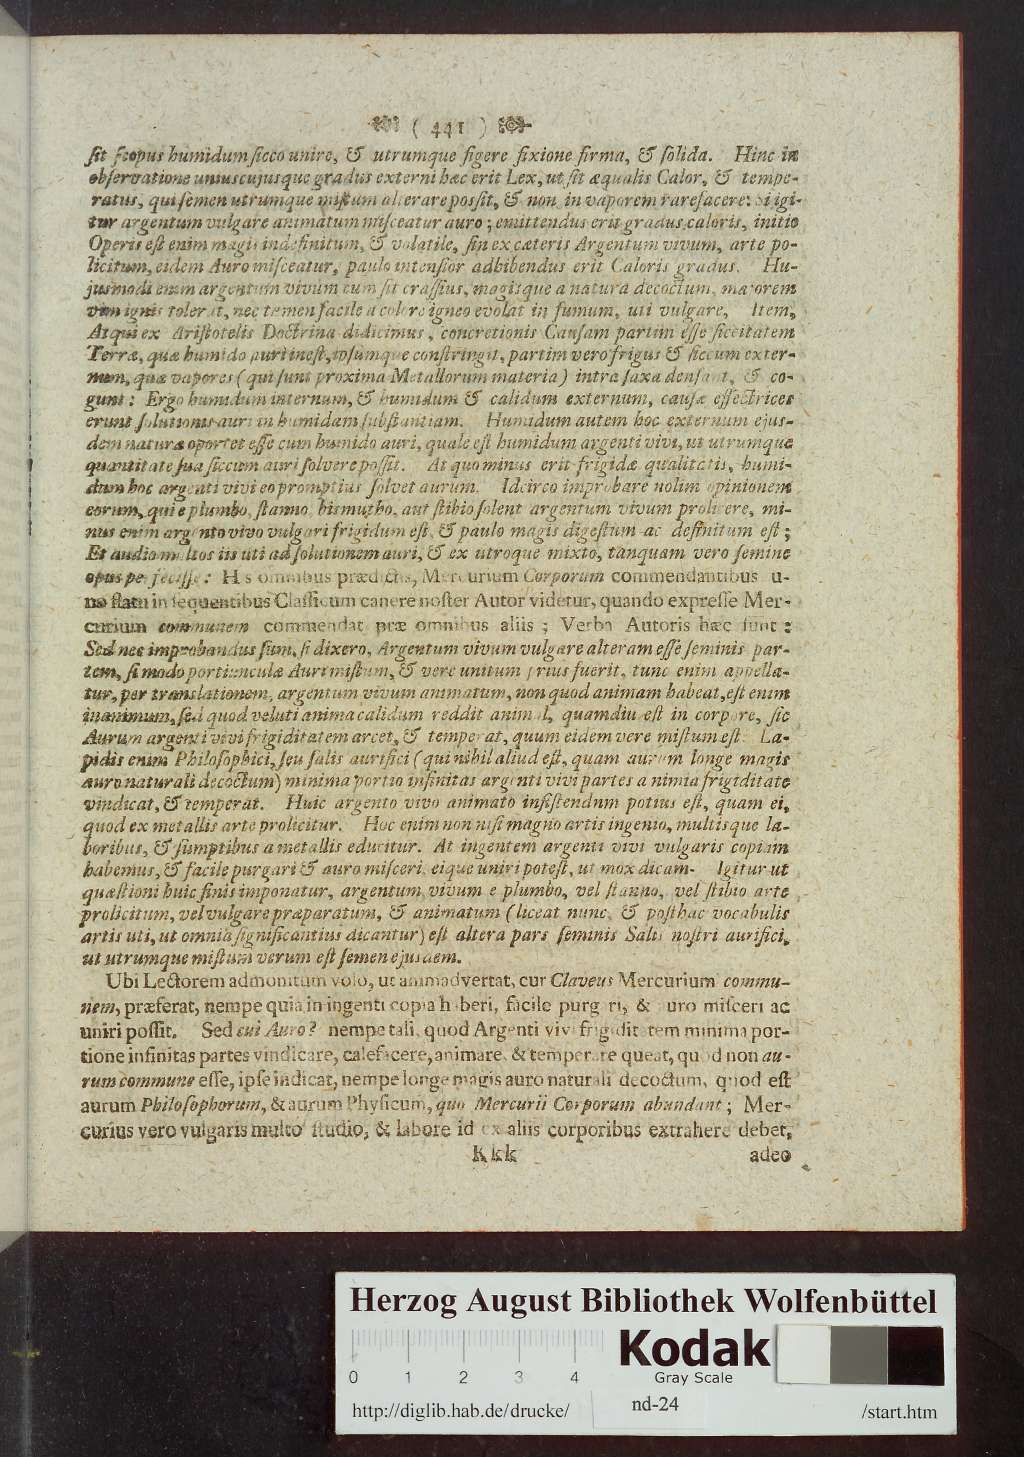 ( 441 )
ſit ſcopus humidum ſicco unire, & utrumque figere fixione firma, & ſolida. Hinc in
obſervatione uniuscujusque gradus externi hæc erit Lex, ut ſit æqualis Calor, & tempe-
ratus, qui ſemen utrumque miſtum alterare poſſit, & non in vaporem rarefacere: Si igi-
tur argentum vulgare animatum miſceatur auro; emittendus erit gradus caloris, initio
Operis eſt enim magis indefinitum, & volatile, ſin ex cæteris Argentum vivum, arte po-
licitum, eidem Auro miſceatur, paulo intenſior adhibendus erit Caloris gradus. Hu-
jusmodi enim argentum vivum cum ſit craſſius, magisque a natura decoctum, majorem
vim ignis tolerat, nec tamen facile a calore igneo evolat in fumum, uti vulgare, Item,
Atqui ex Ariſtotelis Doctrina didicimus, concretionis Cauſam partim eſſe ſiccitatem
Terræ, quæ humido auri ineſt, ipſumque conſtringit, partim vero frigus & ſiccum exter-
num, quæ vapores (qui ſunt proxima Metallorum materia) intra ſaxa denſant, & co-
gunt: Ergo humidum internum, & humidum & calidum externum, cauſæ effectrices
erunt ſolutionis auri in humidam ſubſtantiam. Humidum autem hoc externum ejus-
dem naturæ oportet eſſe cum humido auri, quale eſt humidum argenti vivi, ut utrumque
quantitate ſua ſiccum auri ſolvere poſſit. At quo minus erit frigidæ qualitatis, humi-
dum hoc argenti vivi eo promptius ſolvet aurum. Idcirco improbare nolim opinionem
eorum, qui e plumbo, ſtanno, bismutho, aut ſtibio ſolent argentum vivum prolicere, mi-
nus enim argento vivo vulgari frigidum eſt, & paulo magis digeſtum ac definitum eſt;
Et audio multos iis uti ad ſolutionem auri, & ex utroque mixto, tanquam vero ſemine
opus perfeciſſe: His omnibus prædictis, Mercurium Corporum commendantibus u-
no ſtatu in ſequentibus Claſſicum canere noſter Autor videtur, quando expreſſe Mer-
curium communem commendat præ omnibus aliis; Verba Autoris hæc ſunt:
Sed nec improbandus ſum, ſi dixero, Argentum vivum vulgare alteram eſſe ſeminis par-
tem, ſi modo portiunculæ Auri miſtum, & vere unitum prius fuerit, tunc enim appella-
tur, per translationem, argentum vivum animatum, non quod animam habeat, eſt enim
inanimum, ſed quod veluti anima calidum reddit animal, quamdiu eſt in corpore, ſic
Aurum argenti vivi frigiditatem arcet, & temperat, quum eidem vere miſtum eſt. La-
pidis enim Philoſophici, ſeu ſalis aurifici (qui nihil aliud eſt, quam aurum longe magis
auro naturali decoctum) minima portio infinitas argenti vivi partes a nimia frigiditate
vindicat, & temperat. Huic argento vivo animato inſiſtendum potius eſt, quam ei,
quod ex metallis arte prolicitur. Hoc enim non niſi magno artis ingenio, multisque la-
boribus, & ſumptibus a metallis educitur. At ingentem argenti vivi vulgaris copiam
habemus, & facile purgari & auro miſceri, eique uniri poteſt, ut mox dicam. Igitur ut
quæſtioni huic finis imponatur, argentum, vivum e plumbo, vel ſtanno, vel ſtibio arte
prolicitum, vel vulgare præparatum, & animatum (liceat nunc, & poſthac vocabulis
artis uti, ut omnia ſignificantius dicantur) eſt altera pars ſeminis Salis noſtri aurifici,
ut utrumque miſtum verum eſt ſemen ejusdem.
Ubi Lectorem admonitum volo, ut animadvertat, cur Claveus Mercurium commu-
nem, præferat, nempe quia in ingenti copia haberi, facile purgari, & auro miſceri ac
uniri poſſit. Sed cui Auro? nempe tali, quod Argenti vivi frigiditatem minima por-
tione infinitas partes vindicare, calefacere, animare, & temperare queat, quod non au-
rum commune eſſe, ipſe indicat, nempe longe magis auro naturali decoctum, quod eſt
aurum Philoſophorum, & aurum Phyſicum, quo Mercurii Corporum abundant; Mer-
curius vero vulgaris multo ſtudio, & labore id ex aliis corporibus extrahere debet,
Kkk adeo
Herzog August Bibliothek Wolfenbüttel
Kodak
0 1 2 3 4
Gray Scale
http://diglib.hab.de/drucke/ nd-24 /start.htm